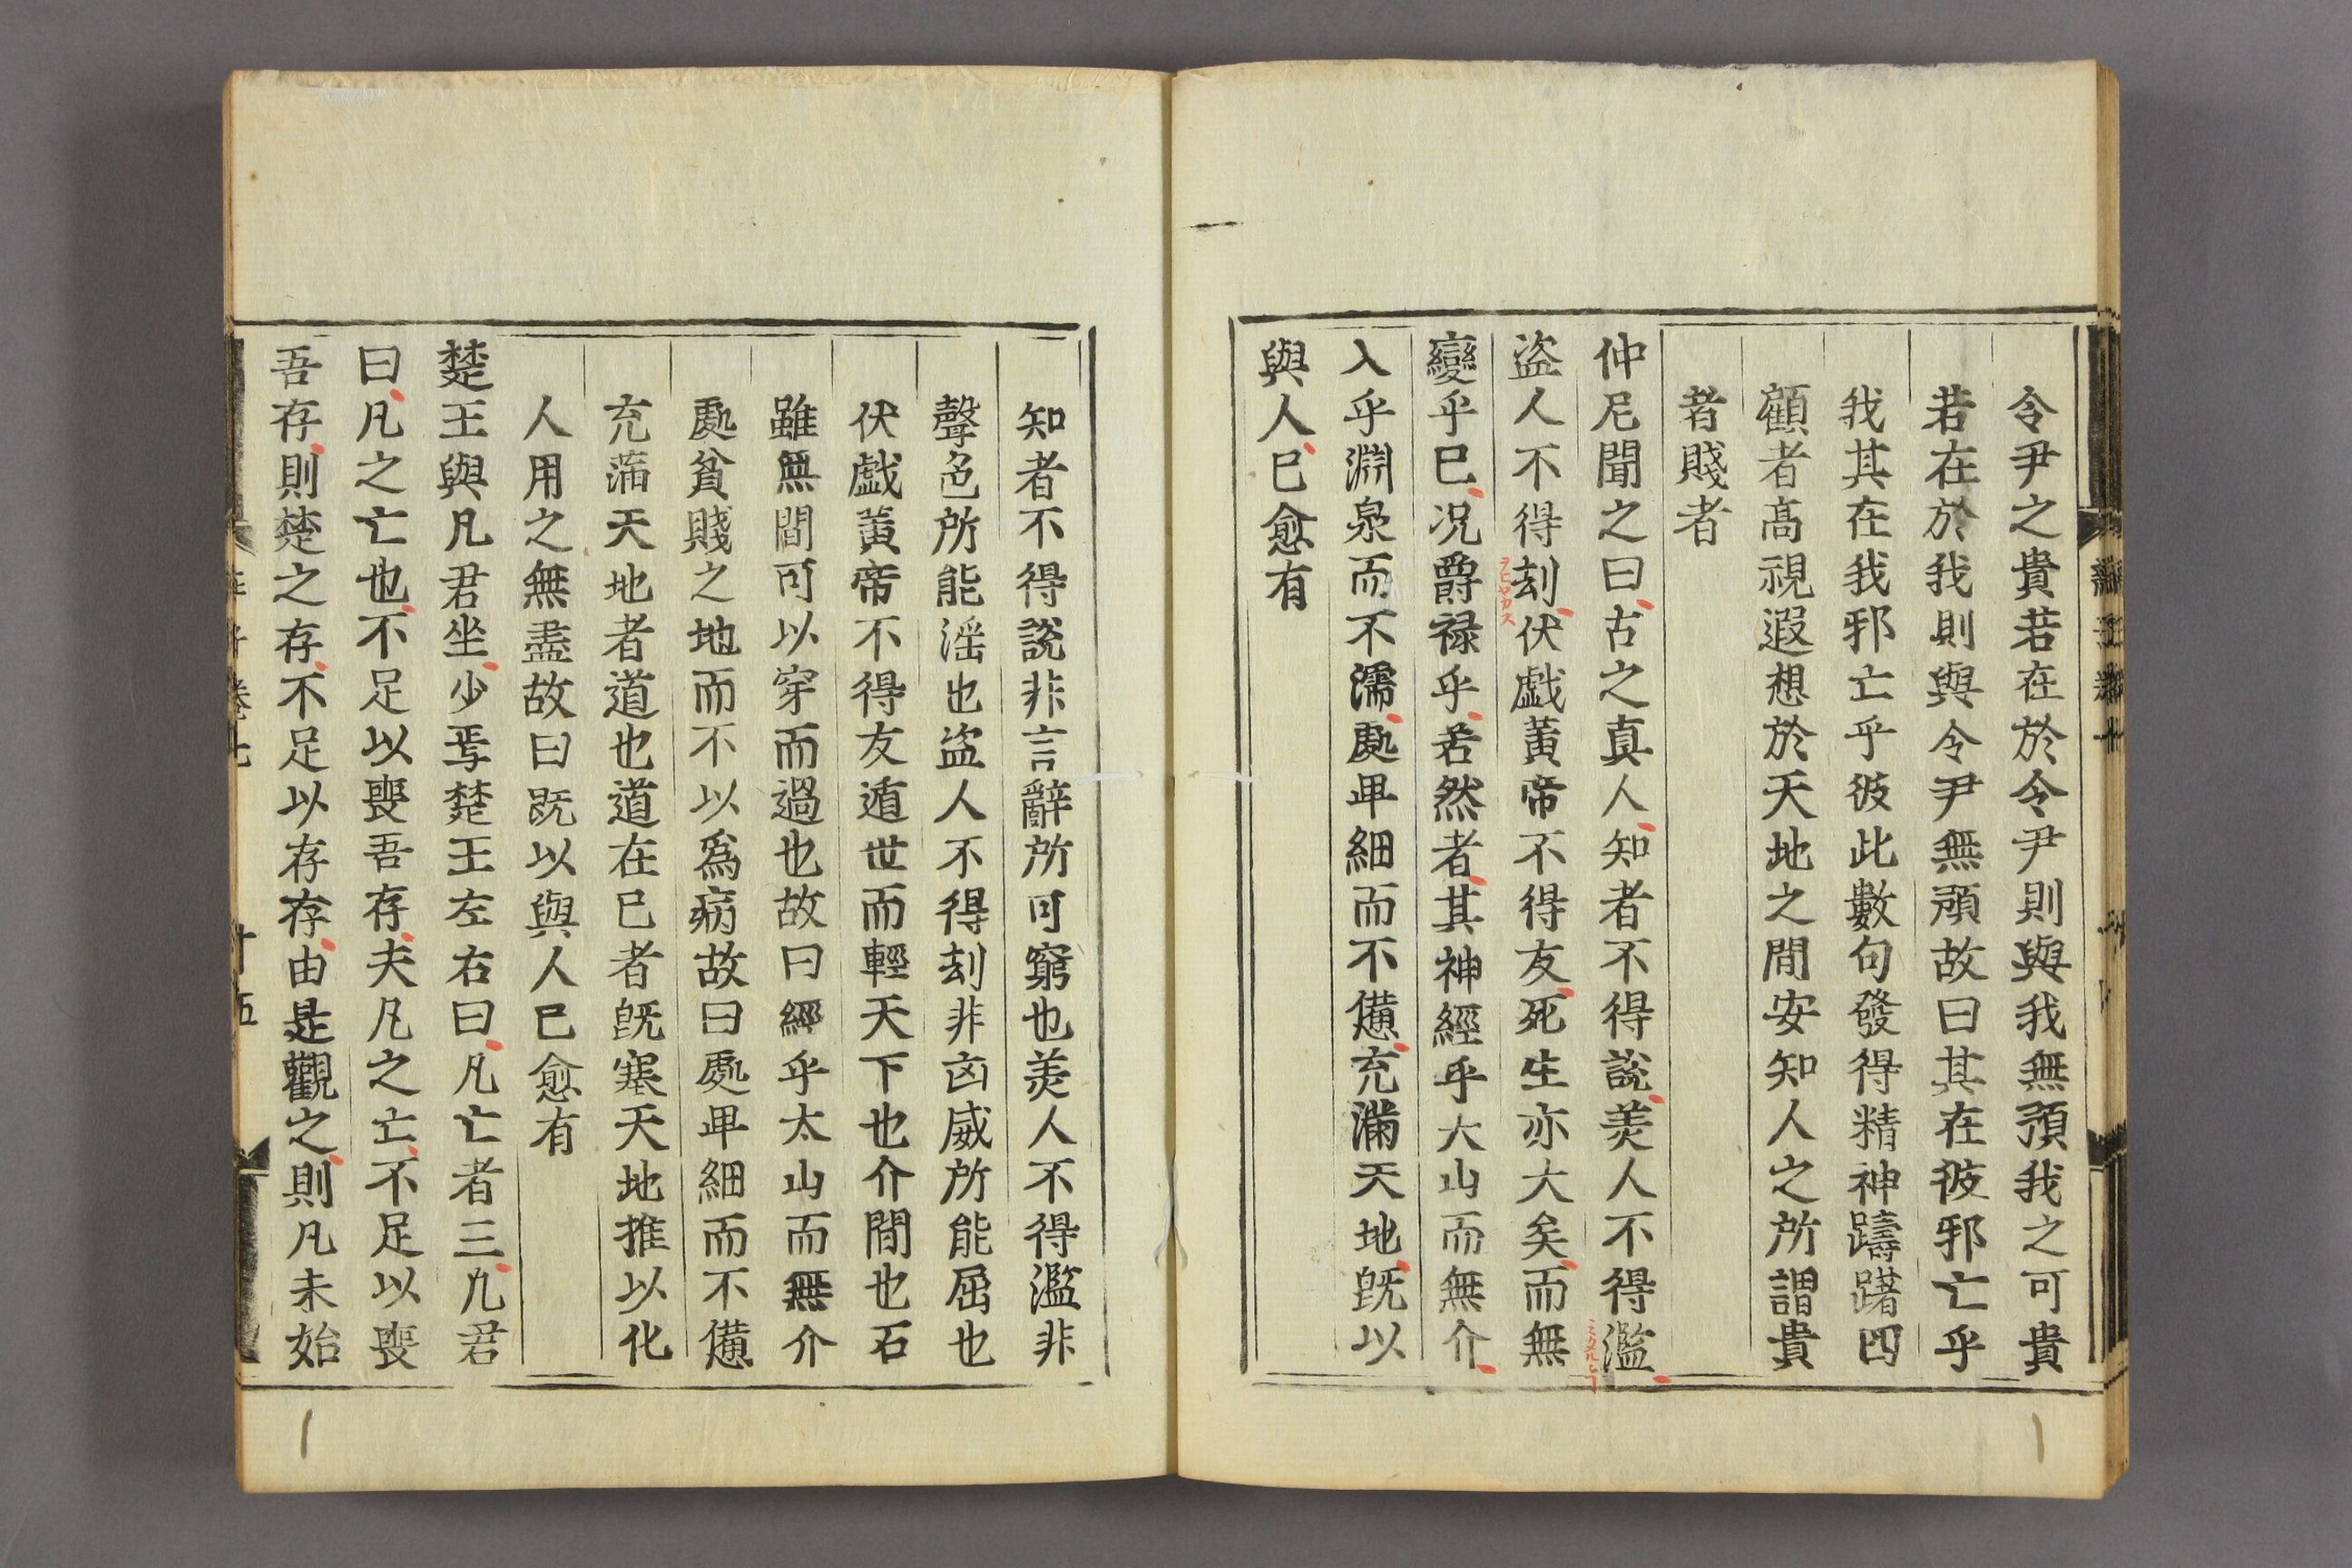 令尹之貴若在於令尹則與我無預我之可貴
若在於我則與令尹無預故曰其在彼邪亡乎
我其在我邪亡乎彼此數句發得精神躊躇四
顧者高視遐想於天地之間安知人之所謂貴
者賤者
仲尼聞之曰古之真人知者不得說羙人不得濫
盗人不得刦伏戯黃帝不得友死生亦大矣而無
變乎巳况爵禄乎若然者其神經乎大山而無介
入乎淵泉而不濡處卑細而不憊充滿天地旣以
與人巳愈有
知者不得說非言辭所可窮也羙人不得濫非
聲色所能滛也盗人不得刦非凶威所能屈也
伏戯黃帝不得友遁世而輕天下也介間也石
雖無間可以穿而過也故曰經乎太山而無介
處貧賤之地而不以爲病故曰處卑細而不憊
充滿天地者道也道在巳者旣塞天地推以化
人用之無盡故曰旣以與人巳愈有
楚王與凡君坐少焉楚王左右曰凡亡者三凡君
曰凡之亡也不足以喪吾存夫凡之亡不足以喪
吾存則楚之存不足以存存由是觀之則凡未始
十五